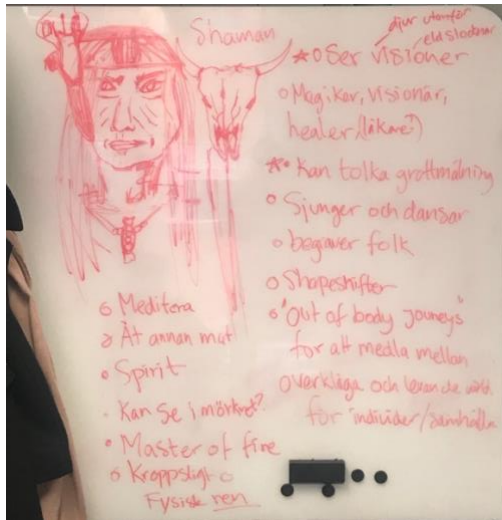 Shaman
djur utanför
eld slocknar
Ser visioner
Magiker, visionär,
healer, (läkare?)
Kan tolka grottmålning
Sjunger och dansar
begraver folk
Shapeshifter
"Out of body journeys"
för att medla mellan
overkliga och levande värld
för individer/samhälle
Meditera
Åt annan mat
Spirit
Kan se i mörkret?
Master of fire
Kroppsligt
Fysisk ren